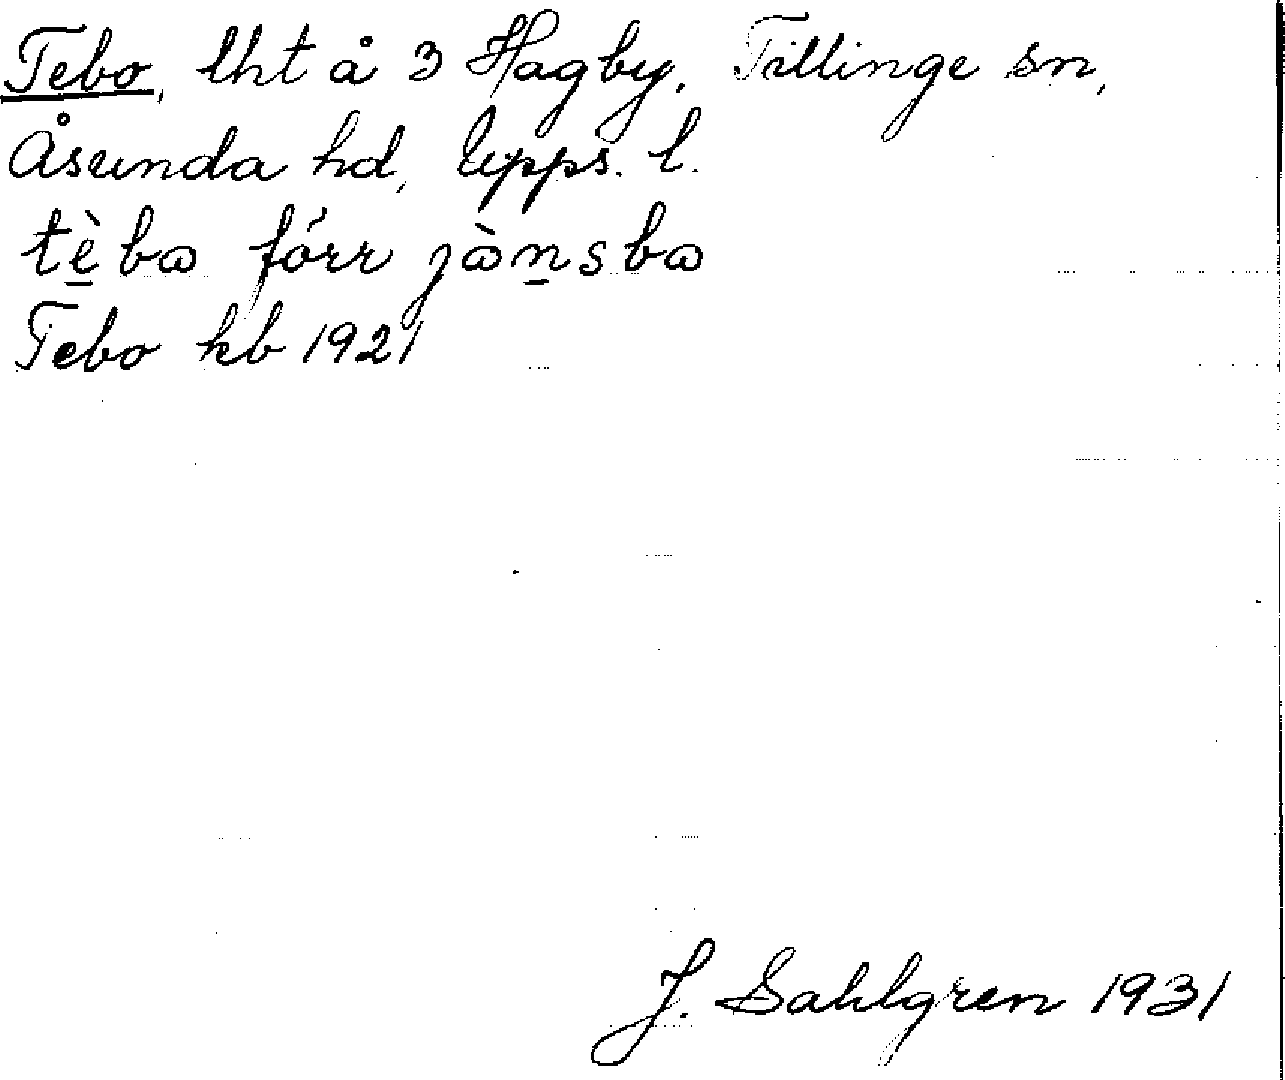 Tebo, lht å 3 Hagby, Tillinge sn,
Åsunda hd, Upps. l.
tè̲bɷ förr jɷ̀n̲sbɷ
Tebo kb 1921
J. Sahlgren 1931